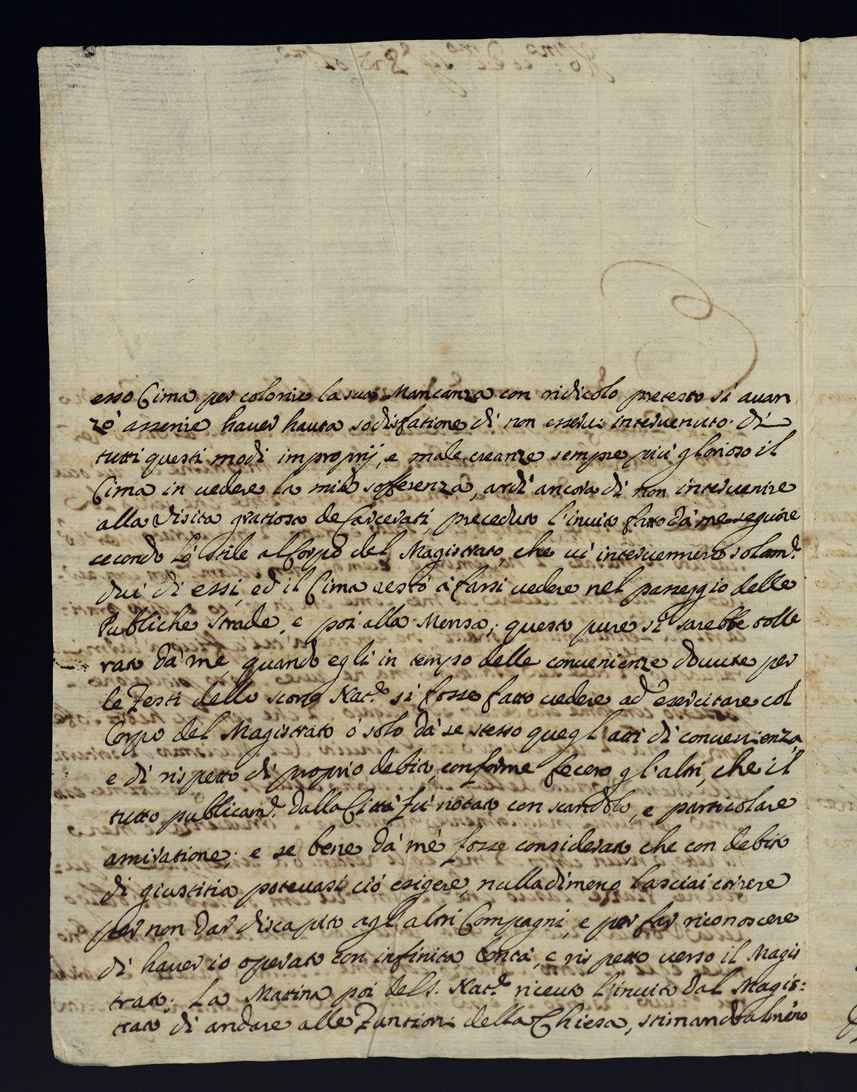 esso Cima per colorire la sua Mancanza con ridicolo pretesto si avan
zò asserire haver havta sodisfatione di non esservi intervenuto: di
tutti questi modi improprij, e male creanze sempre più glorioso il
Cima in vedere la mia sofferenza, ardì ancora di non intervenire
alla Visita gratiosa de Carcerati, preceduto l'invito fatto da me seguire
secondo lo stile al Corpo del Magistrato, che vi intervennero solam.e
dui di essi, ed il Cima restò à farsi vedere nel passeggio delle
Publiche strade, e poi alla Mensa; questo pure si sarebbe tolle
rato da me quando egli in tempo delle convenienze dovute per
le Festi dello scorso Nat.e si fosse fatto vedere ad esercitare col
Corpo del Magistrato ò solo da se stesso quegl'atti di convenienza,
e di rispetto di proprio debito, conforme fecero gl'altri, che il
tutto publicam.e dalla Città fù notato con scandolo, e particolare
amiratione; e se bene da mé fosse considerato, che con debito
di giustitia potevasi ciò esigere, nulladimeno lasciai correre
per non dar discapito agl'altri Compagni, e per far riconoscere
di haver io operato con infinita bontà, e rispetto verso il Magis
trato; La Matina poi del S. Nat.e ricevo l'invito dal Magis:
trato di andare alle Funtioni della Chiesa, stimando almeno